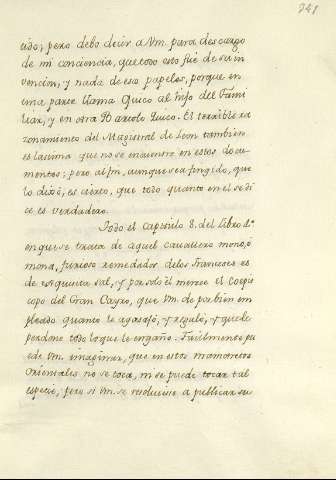 241
cido; pero debo decir a Vm. para descargo
de mi conciencia, que todo esto fue de su in
vencion, y nada de esos papeles, porque en
una parte llama Quico al hijo del Fami
liar, y en otra Bartolo Quico. El terrible ra
zonamiento del Magistral de Leon tambien
es lastima que no se encuentre en estos docu
mentos; pero al fin, aunque sea fingido, que
lo dixo, es cierto, que todo quanto en el se di
ce es verdadero.
Todo el capitulo 8. del Libro 1.º
en que se trata de aquel cavallero mono, ó
mona, furioso remedador de los Franceses es
de exquisita sal, y por solo él merece el
copo del Gran Cayro, que Vm. dé por bien em
pleado quanto le agasajó, y regaló, y que le
perdone todo lo que le engaño. Facilmente pu
ede Vm. imaginar, que en estos mamotretos
Orientales no se toca, ni se puede tocar tal
especie; pero si Vm. se resolviese a publicar su